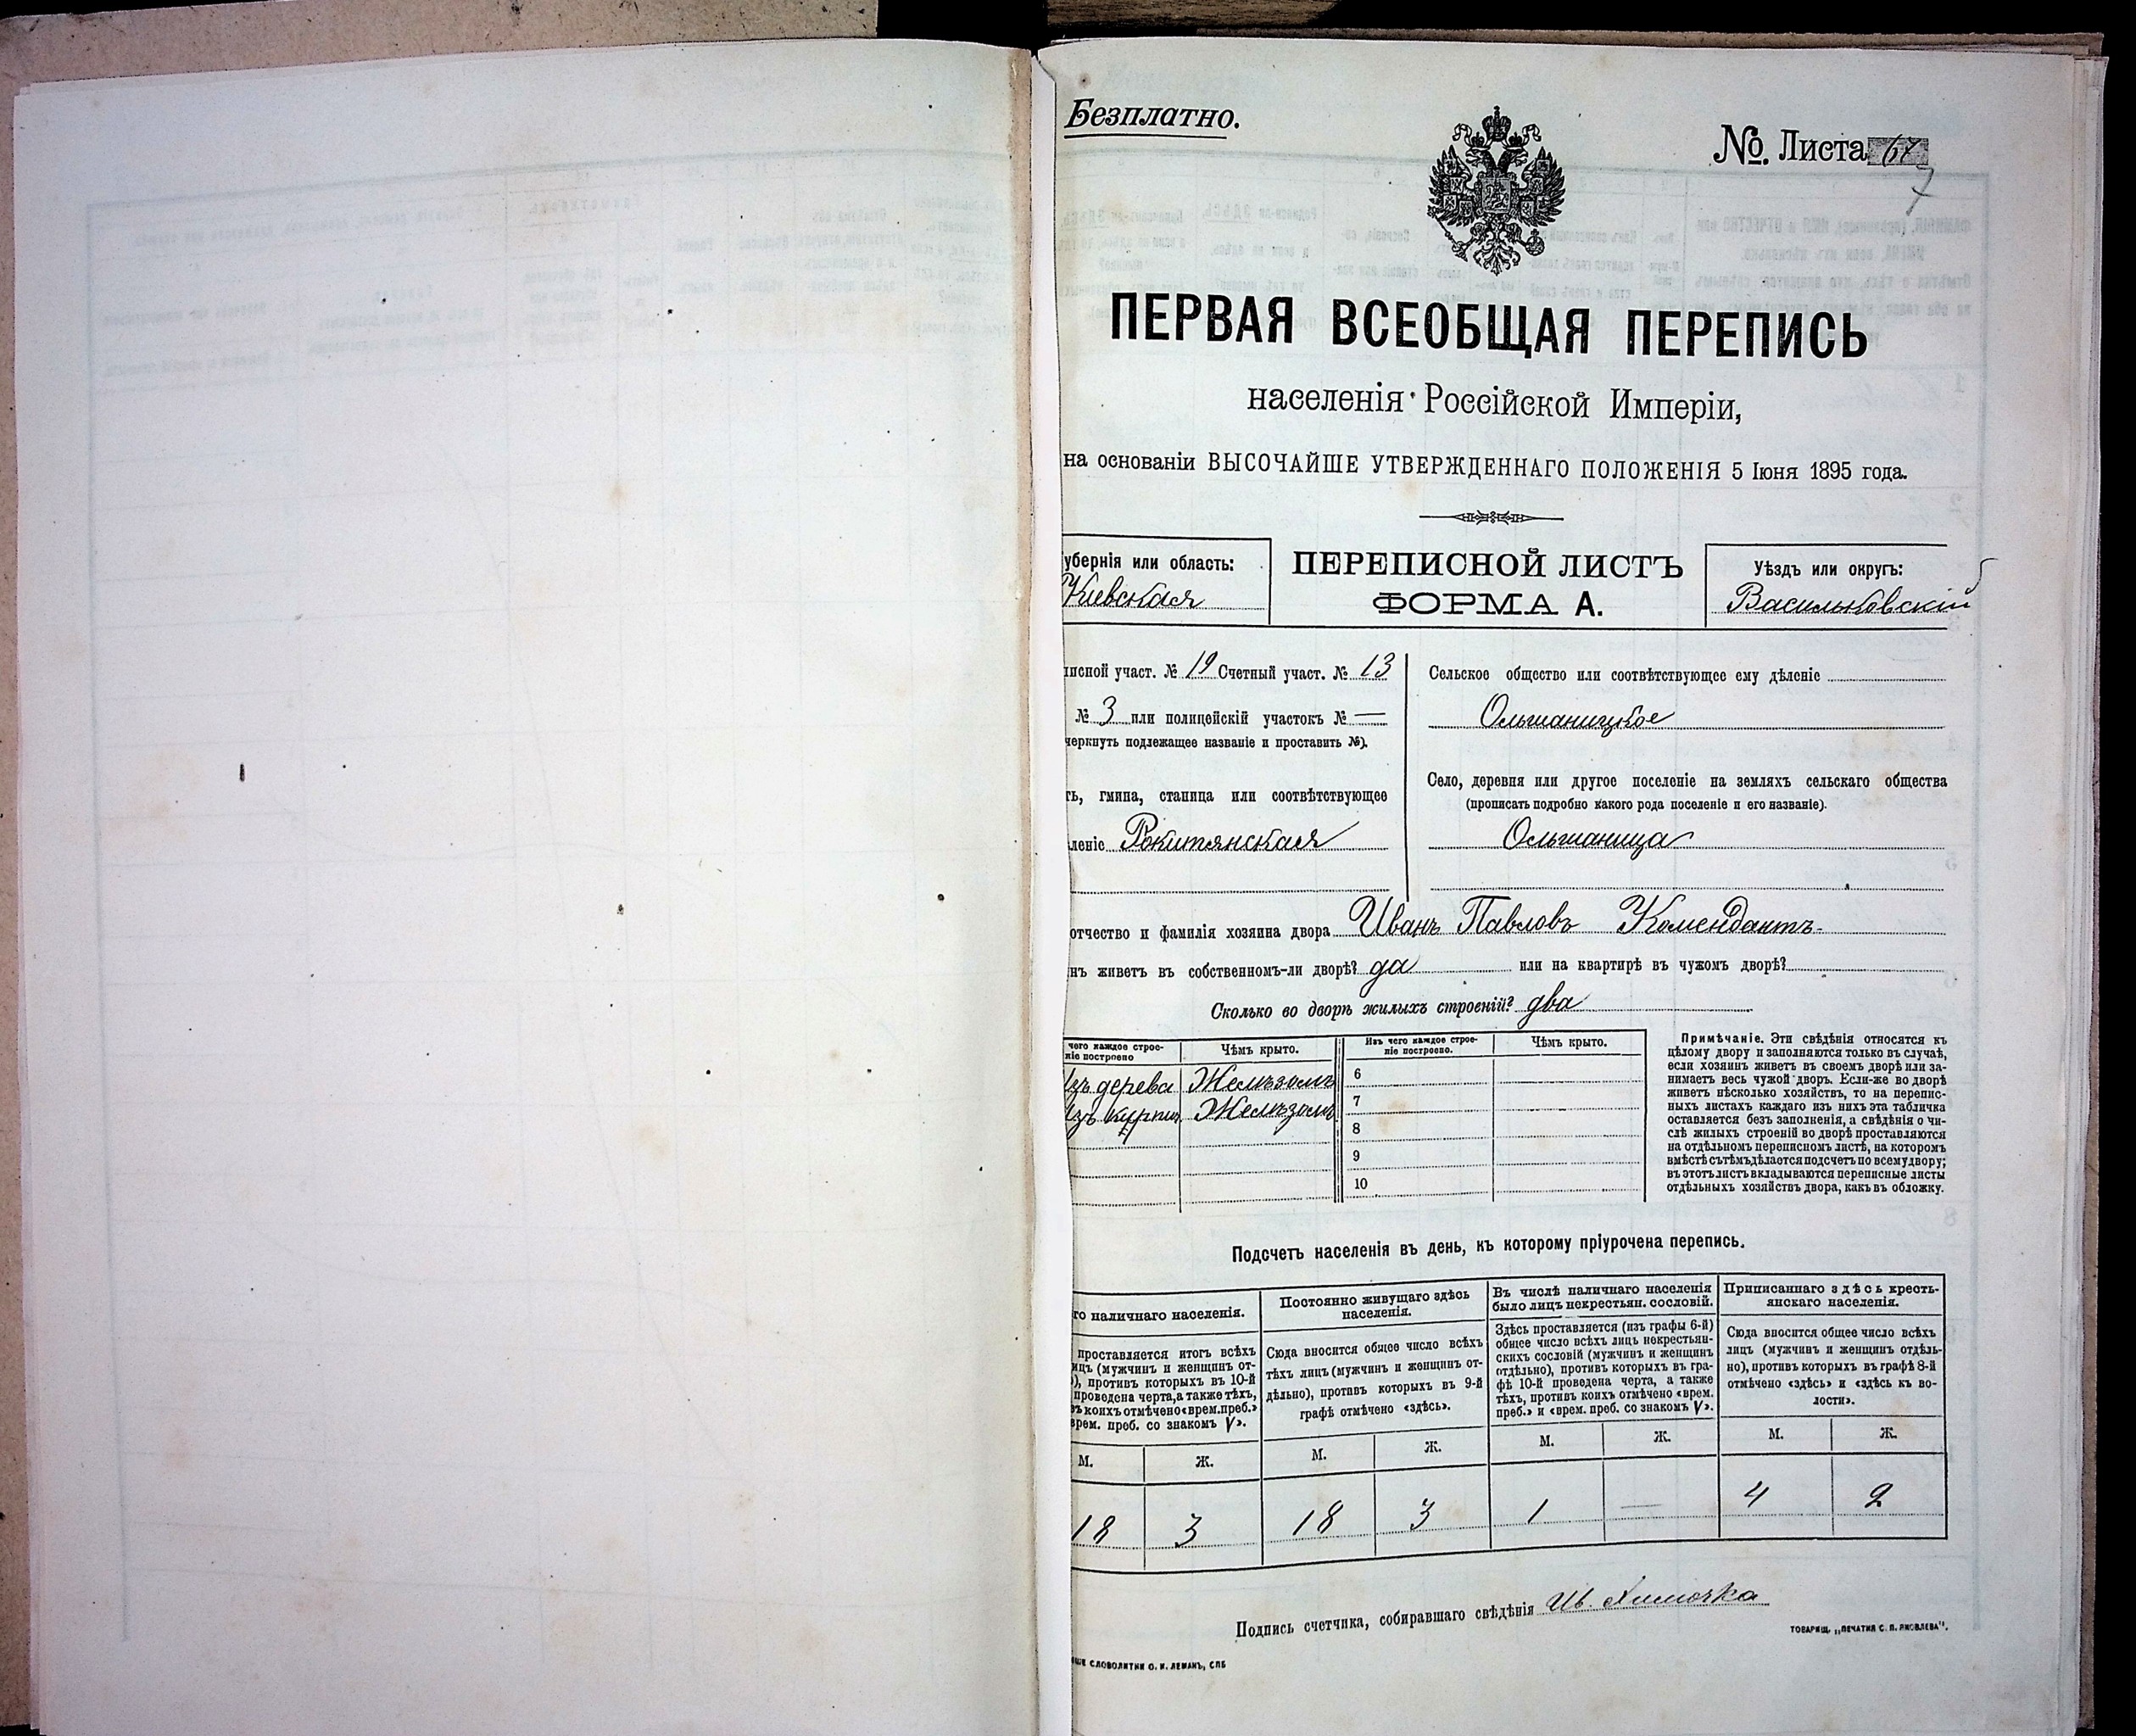 Безплатно.
№. Листа 67
7
ПЕРВАЯ ВСЕОБЩАЯ ПЕРЕПИСЬ
населенія Россійской Имперіи,
на основаніи ВЫСОЧАЙШЕ УТВЕРЖДЕННАГО ПОЛОЖЕНІЯ 5 Іюня 1895 года.
убернія или область:
Кіевская
ПЕРЕПИСНОЙ ЛИСТЪ
ФОРМА А.
Уѣздъ или округъ:
Васильковскій
писной участ. № 19 Счетный участ. № 13
№ 3 или полицейскій участокъ № —
черкнуть подлежащее названіе и проставить №).
ть, гмина, станица или соотвѣтствующее
леніе Рокитянская
Сельское общество или соотвѣтствующее ему дѣленіе
Ольшаницкое
Село, деревня или другое поселеніе на земляхъ сельскаго общества
(прописать подробно какого рода поселеніе и его названіе).
Ольшаница
отчество и фамилія хозяина двора Иванъ Павловъ Комендантъ
нъ живетъ въ собственномъ-ли дворѣ? да или на квартирѣ въ чужомъ дворѣ?
Сколько во дворѣ жилыхъ строеній? два
чего каждое строе-
ніе построено
Чѣмъ крыто.
Изъ чего каждое строе-
ніе построено.
Чѣмъ крыто.
Изъ дерева Желѣзомъ 6
Изъ кирпич. Желѣзомъ 7
8
9
10
Примѣчаніе. Эти свѣдѣнія относятся къ
цѣлому двору и заполняются только въ случаѣ,
если хозяинъ живетъ въ своемъ дворѣ или за-
нимаетъ весь чужой дворъ. Если-же во дворѣ
живетъ нѣсколько хозяйствъ, то на перепис-
ныхъ листахъ каждаго изъ нихъ эта табличка
оставляется безъ заполненія, а свѣдѣнія о чи-
слѣ жилыхъ строеній во дворѣ проставляются
на отдѣльномъ переписномъ листѣ, на которомъ
вмѣстѣ съ тѣмъ дѣлается подсчетъ по всему двору;
въ этотъ листъ вкладываются переписные листы
отдѣльныхъ хозяйствъ двора, какъ въ обложку.
Подсчетъ населенія въ день, къ которому пріурочена перепись.
го наличнаго населенія.
проставляется итогъ всѣхъ
ицъ (мужчинъ и женщинъ от-
), противъ которыхъ въ 10-й
проведена черта, а также тѣхъ,
въ коихъ отмѣчено «врем. преб.»
врем. преб. со знакомъ V».
М. Ж.
18 3
Постоянно живущаго здѣсь
населенія.
Сюда вносится общее число всѣхъ
тѣхъ лицъ (мужчинъ и женщинъ от-
дѣльно), противъ которыхъ въ 9-й
графѣ отмѣчено «здѣсь».
М. Ж.
18 3
Въ числѣ наличнаго населенія
было лицъ некрестьян. сословій.
Здѣсь проставляется (изъ графы 6-й)
общее число всѣхъ лицъ некрестьян-
скихъ сословій (мужчинъ и женщинъ
отдѣльно), противъ которыхъ въ гра-
фѣ 10-й проведена черта, а также
тѣхъ, противъ коихъ отмѣчено «врем.
преб.» и «врем. преб. со знакомъ V».
М. Ж.
1 —
Приписаннаго здѣсь кресть-
янскаго населенія.
Сюда вносится общее число всѣхъ
лицъ (мужчинъ и женщинъ отдѣль-
но), противъ которыхъ въ графѣ 8-й
отмѣчено «здѣсь» и «здѣсь къ во-
лости».
М. Ж.
4 2
Подпись счетчика, собиравшаго свѣдѣнія Ив.
ТОВАРИЩ. „ПЕЧАТНЯ С. П. ЯКОВЛЕВА".
СЛОВОЛИТНИ О. И. ЛЕМАНЪ, СПБ